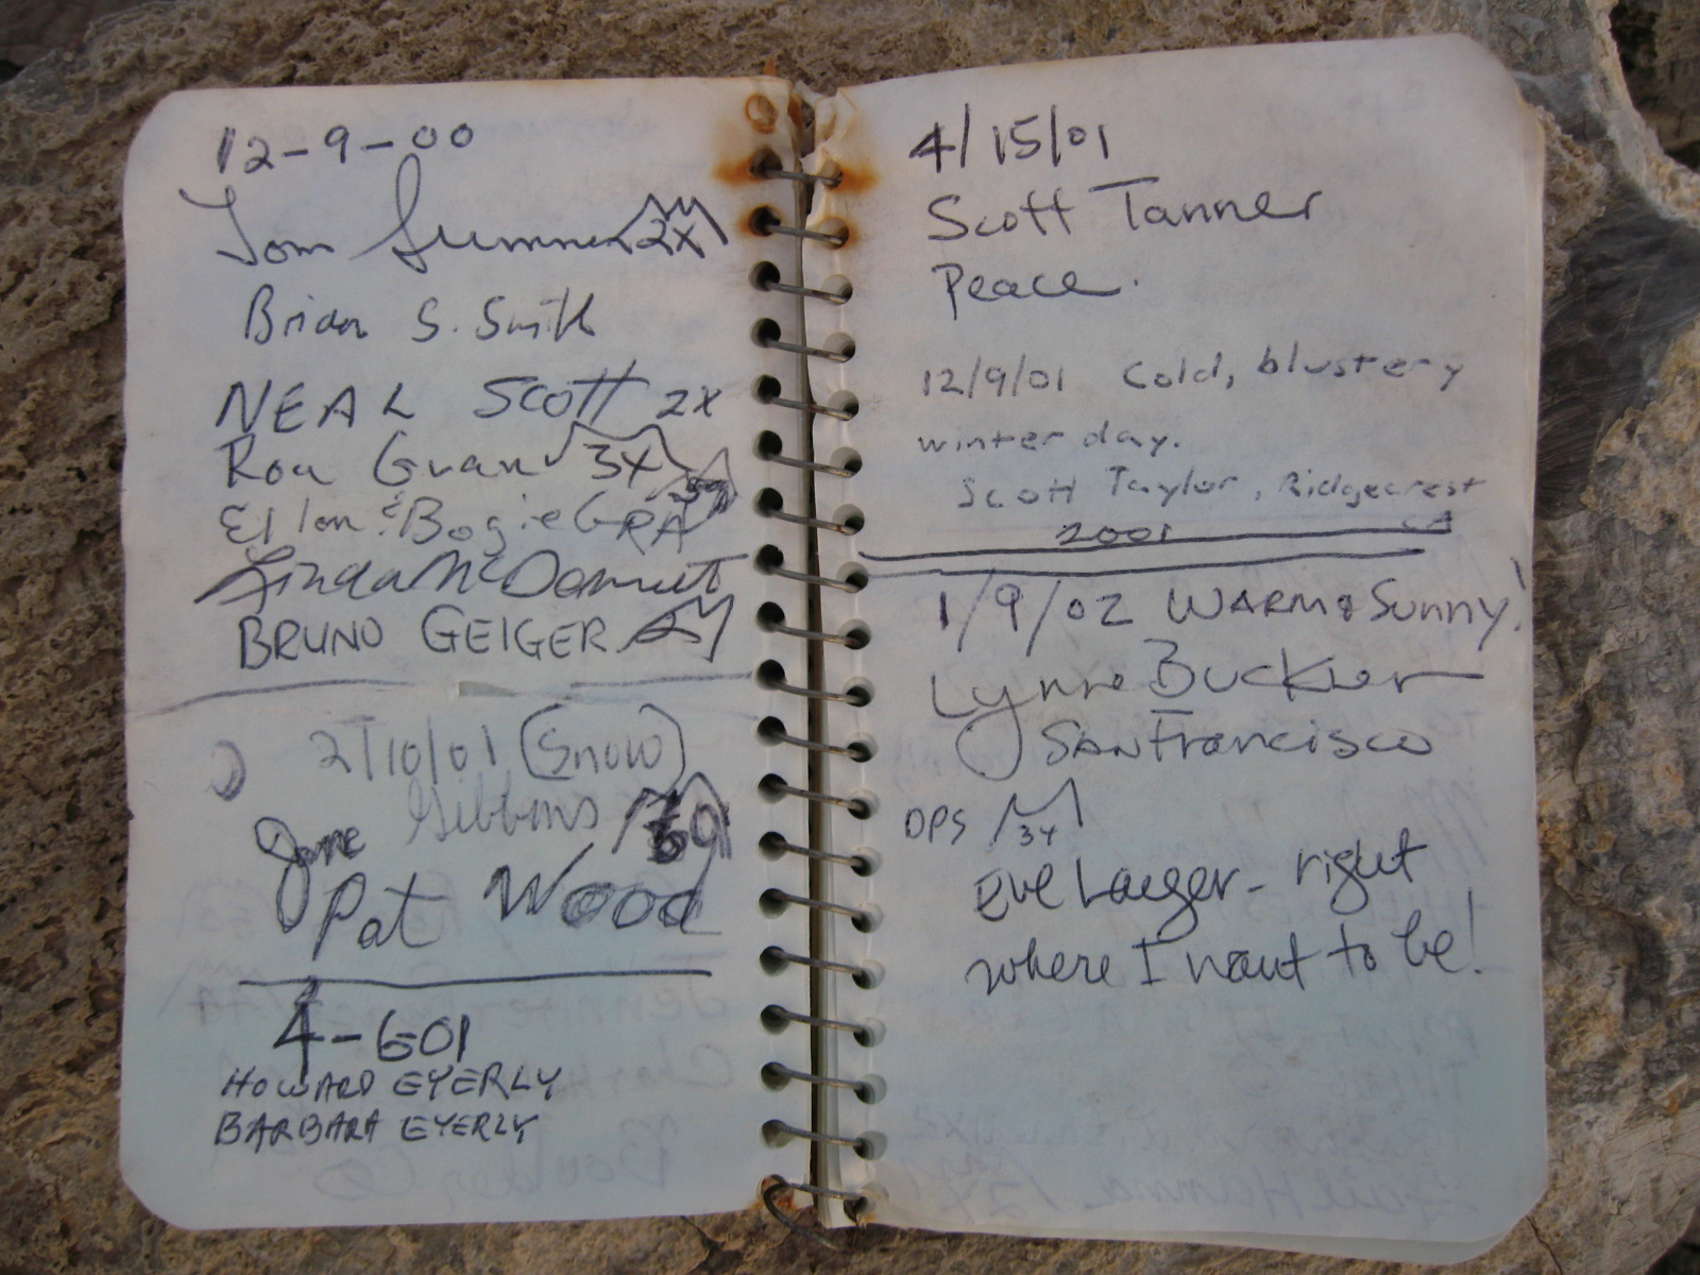 12-9-00
Tom Sumner 2X
Brian S. Smith
NEAL SCOTT 2X
Ron Gran 3X
& Bogie
Linda McDermott
BRUNO GEIGER
2/10/01 (Snow)
Jane Gibbons
Pat Wood
4-6-01
HOWARD EYERLY
BARBARA EYERLY
4/15/01
Scott Tanner
Peace.
12/9/01 Cold, blustery
winter day.
Scott Taylor, Ridgecrest
CA
2001
1/9/02 WARM & Sunny!
Lynne Buckner
San Francisco
DPS 34
Eve Laeger - right
where I want to be!